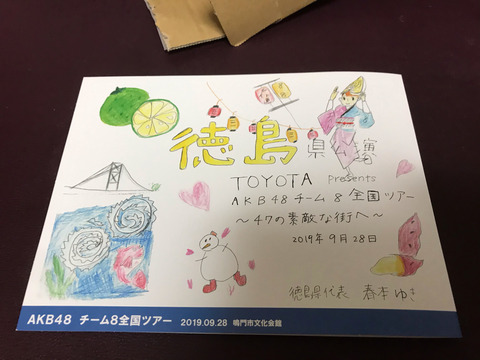 徳島県公演
TOYOTA Presents
AKB48 チーム8 全国ツアー
〜47の素敵な街へ〜
2019年9月28日
徳島県代表 春本ゆき
AKB48 チーム8全国ツアー 2019.09.28 鳴門市文化会館